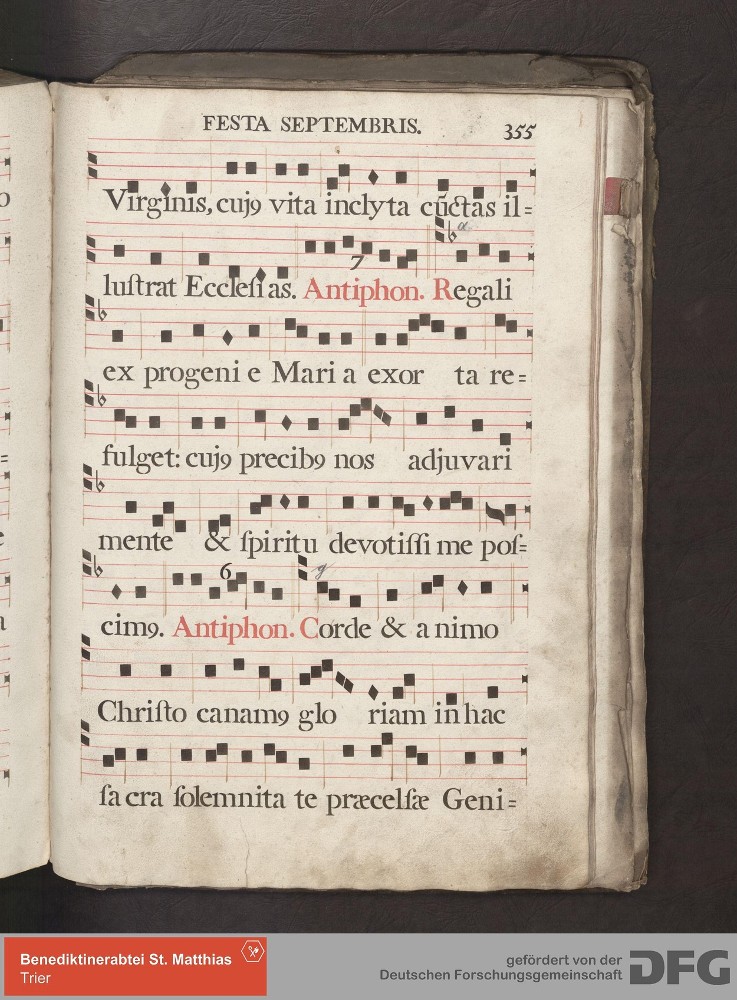 FESTA SEPTEMBRIS. 355
Virginis, cujꝰ vita inclyta cūctas il=
a
7
luſtrat Eccleſias. Antiphon. Regali
ex progenie Maria exorta re=
fulget: cujꝰ precibꝰ nos adjuvari
mente & ſpiritu devotiſſime poſ=
6 g
cimꝰ. Antiphon. Corde & animo
Chriſto canamꝰ gloriam in hac
ſacra ſolemnitate præcelſæ Geni=
Benediktinerabtei St. Matthias
Trier
gefördert von der
Deutschen Forschungsgemeinschaft
DFG